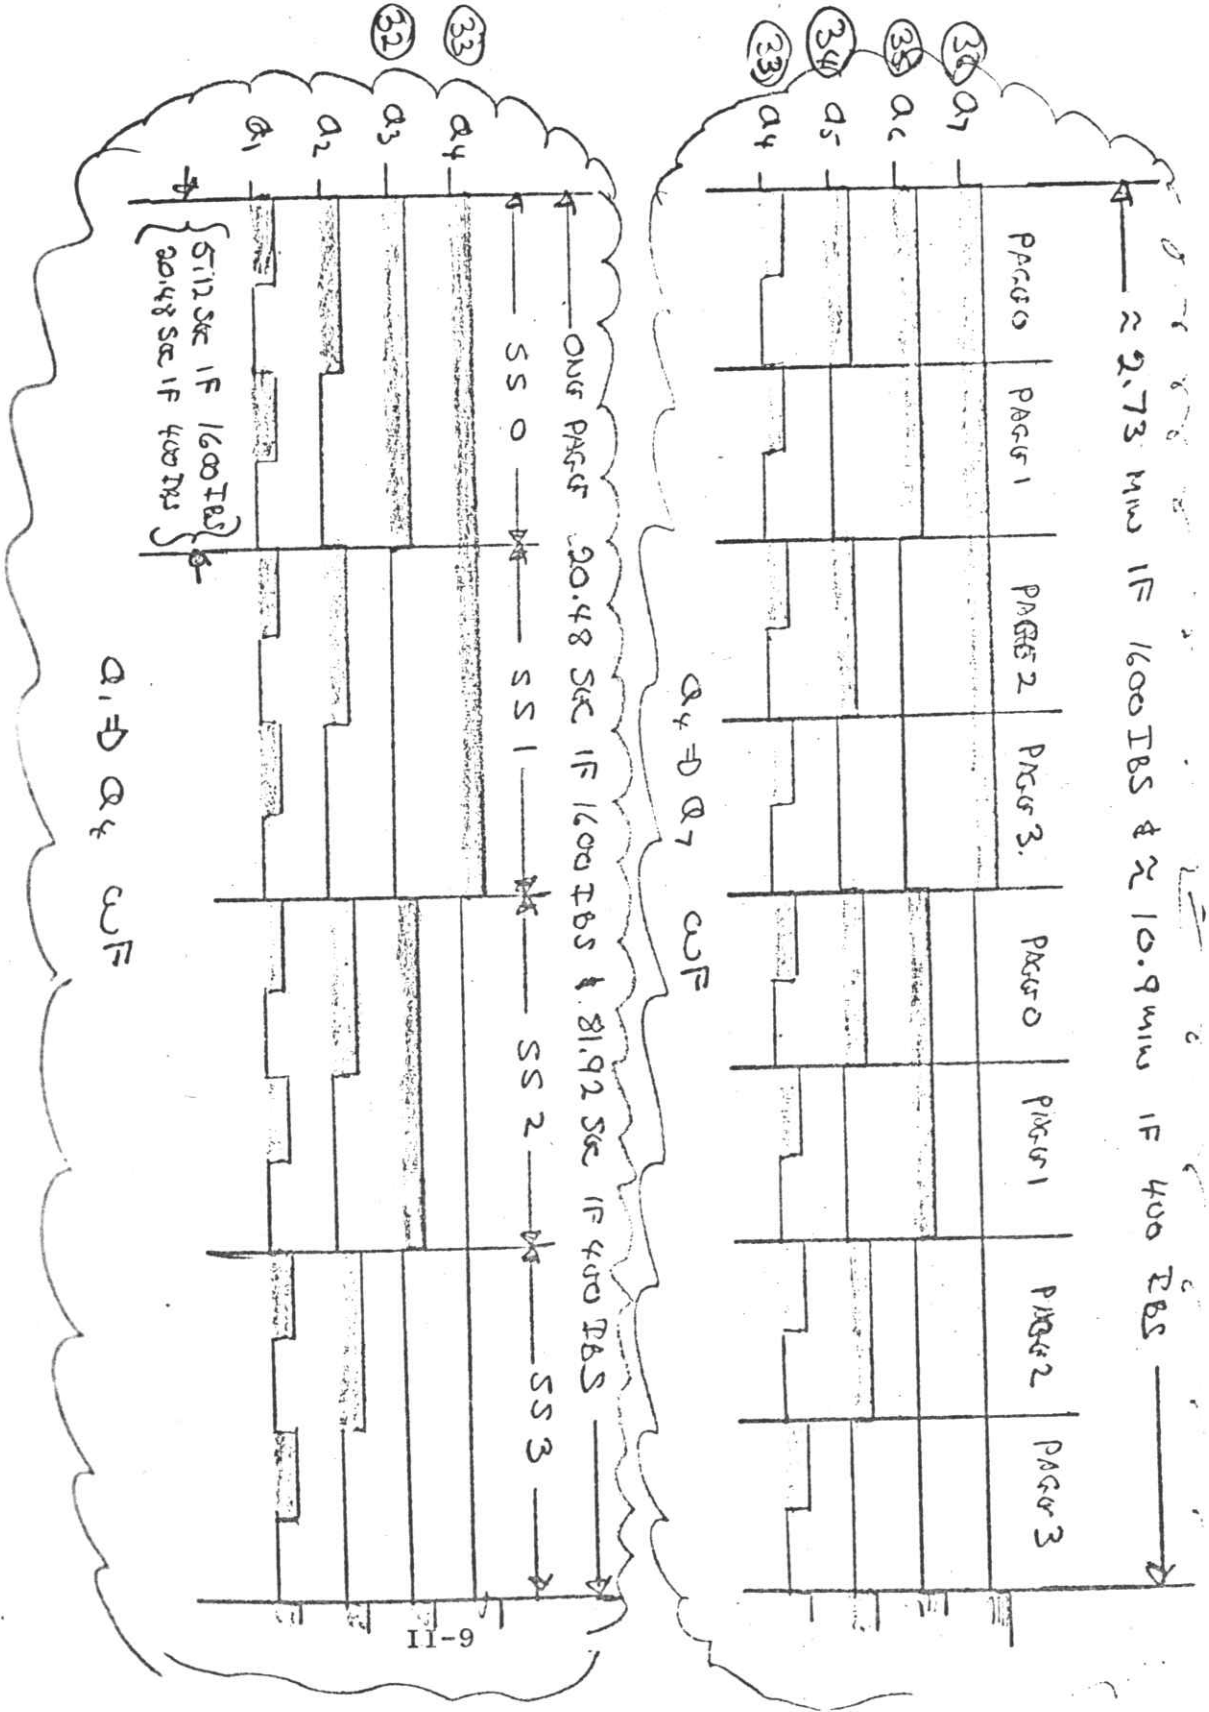 ≈ 2.73 MIN IF 1600 IBS & ≈ 10.9 MIN IF 400 IBS
PAGE 0 PAGE 1 PAGE 2 PAGE 3. PAGE 0 PAGE 1 PAGE 2 PAGE 3
36 a7
35 a6
34 a5
33 a4
a4 ⇒ a7 WF
ONE PAGE 20.48 SEC IF 1600 IBS & 81.92 SEC IF 400 IBS
SS 0 SS 1 SS 2 SS 3
33 a4
32 a3
a2
a1
{ 5.12 SEC IF 1600 IBS }
{ 20.48 SEC IF 400 IBS }
a1 ⇒ a4 WF
II-9